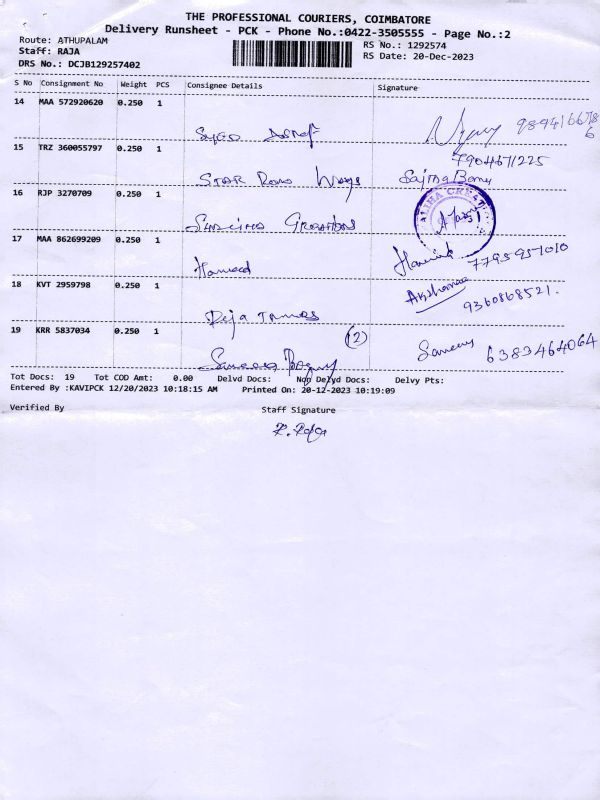 THE PROFESSIONAL COURIERS, COIMBATORE
Delivery Runsheet - PCK - Phone No.:0422-3505555 - Page No.:2
Route: ATHUPALAM
RS No.: 1292574
Staff: RAJA
RS Date: 20-Dec-2023
DRS No.: DCJB129257402
S No Consignment No Weight PCS Consignee Details Signature
14 MAA 572920620 0.250 1
Syed
15 TRZ 360055797 0.250 1
7904671225
STAR Road Ways Sajma Banu
16 RJP 3270709 0.250 1
17 MAA 862699209 0.250 1
Hameed 7795957010
18 KVT 2959798 0.250 1
Akshanaa
9360868521.
19 KRR 5837034 0.250 1
(2)
6383464064
Tot Docs: 19 Tot COD Amt: 0.00 Delvd Docs: Non Delvd Docs: Delvy Pts:
Entered By :KAVIPCK 12/20/2023 10:18:15 AM Printed On: 20-12-2023 10:19:09
Verified By Staff Signature